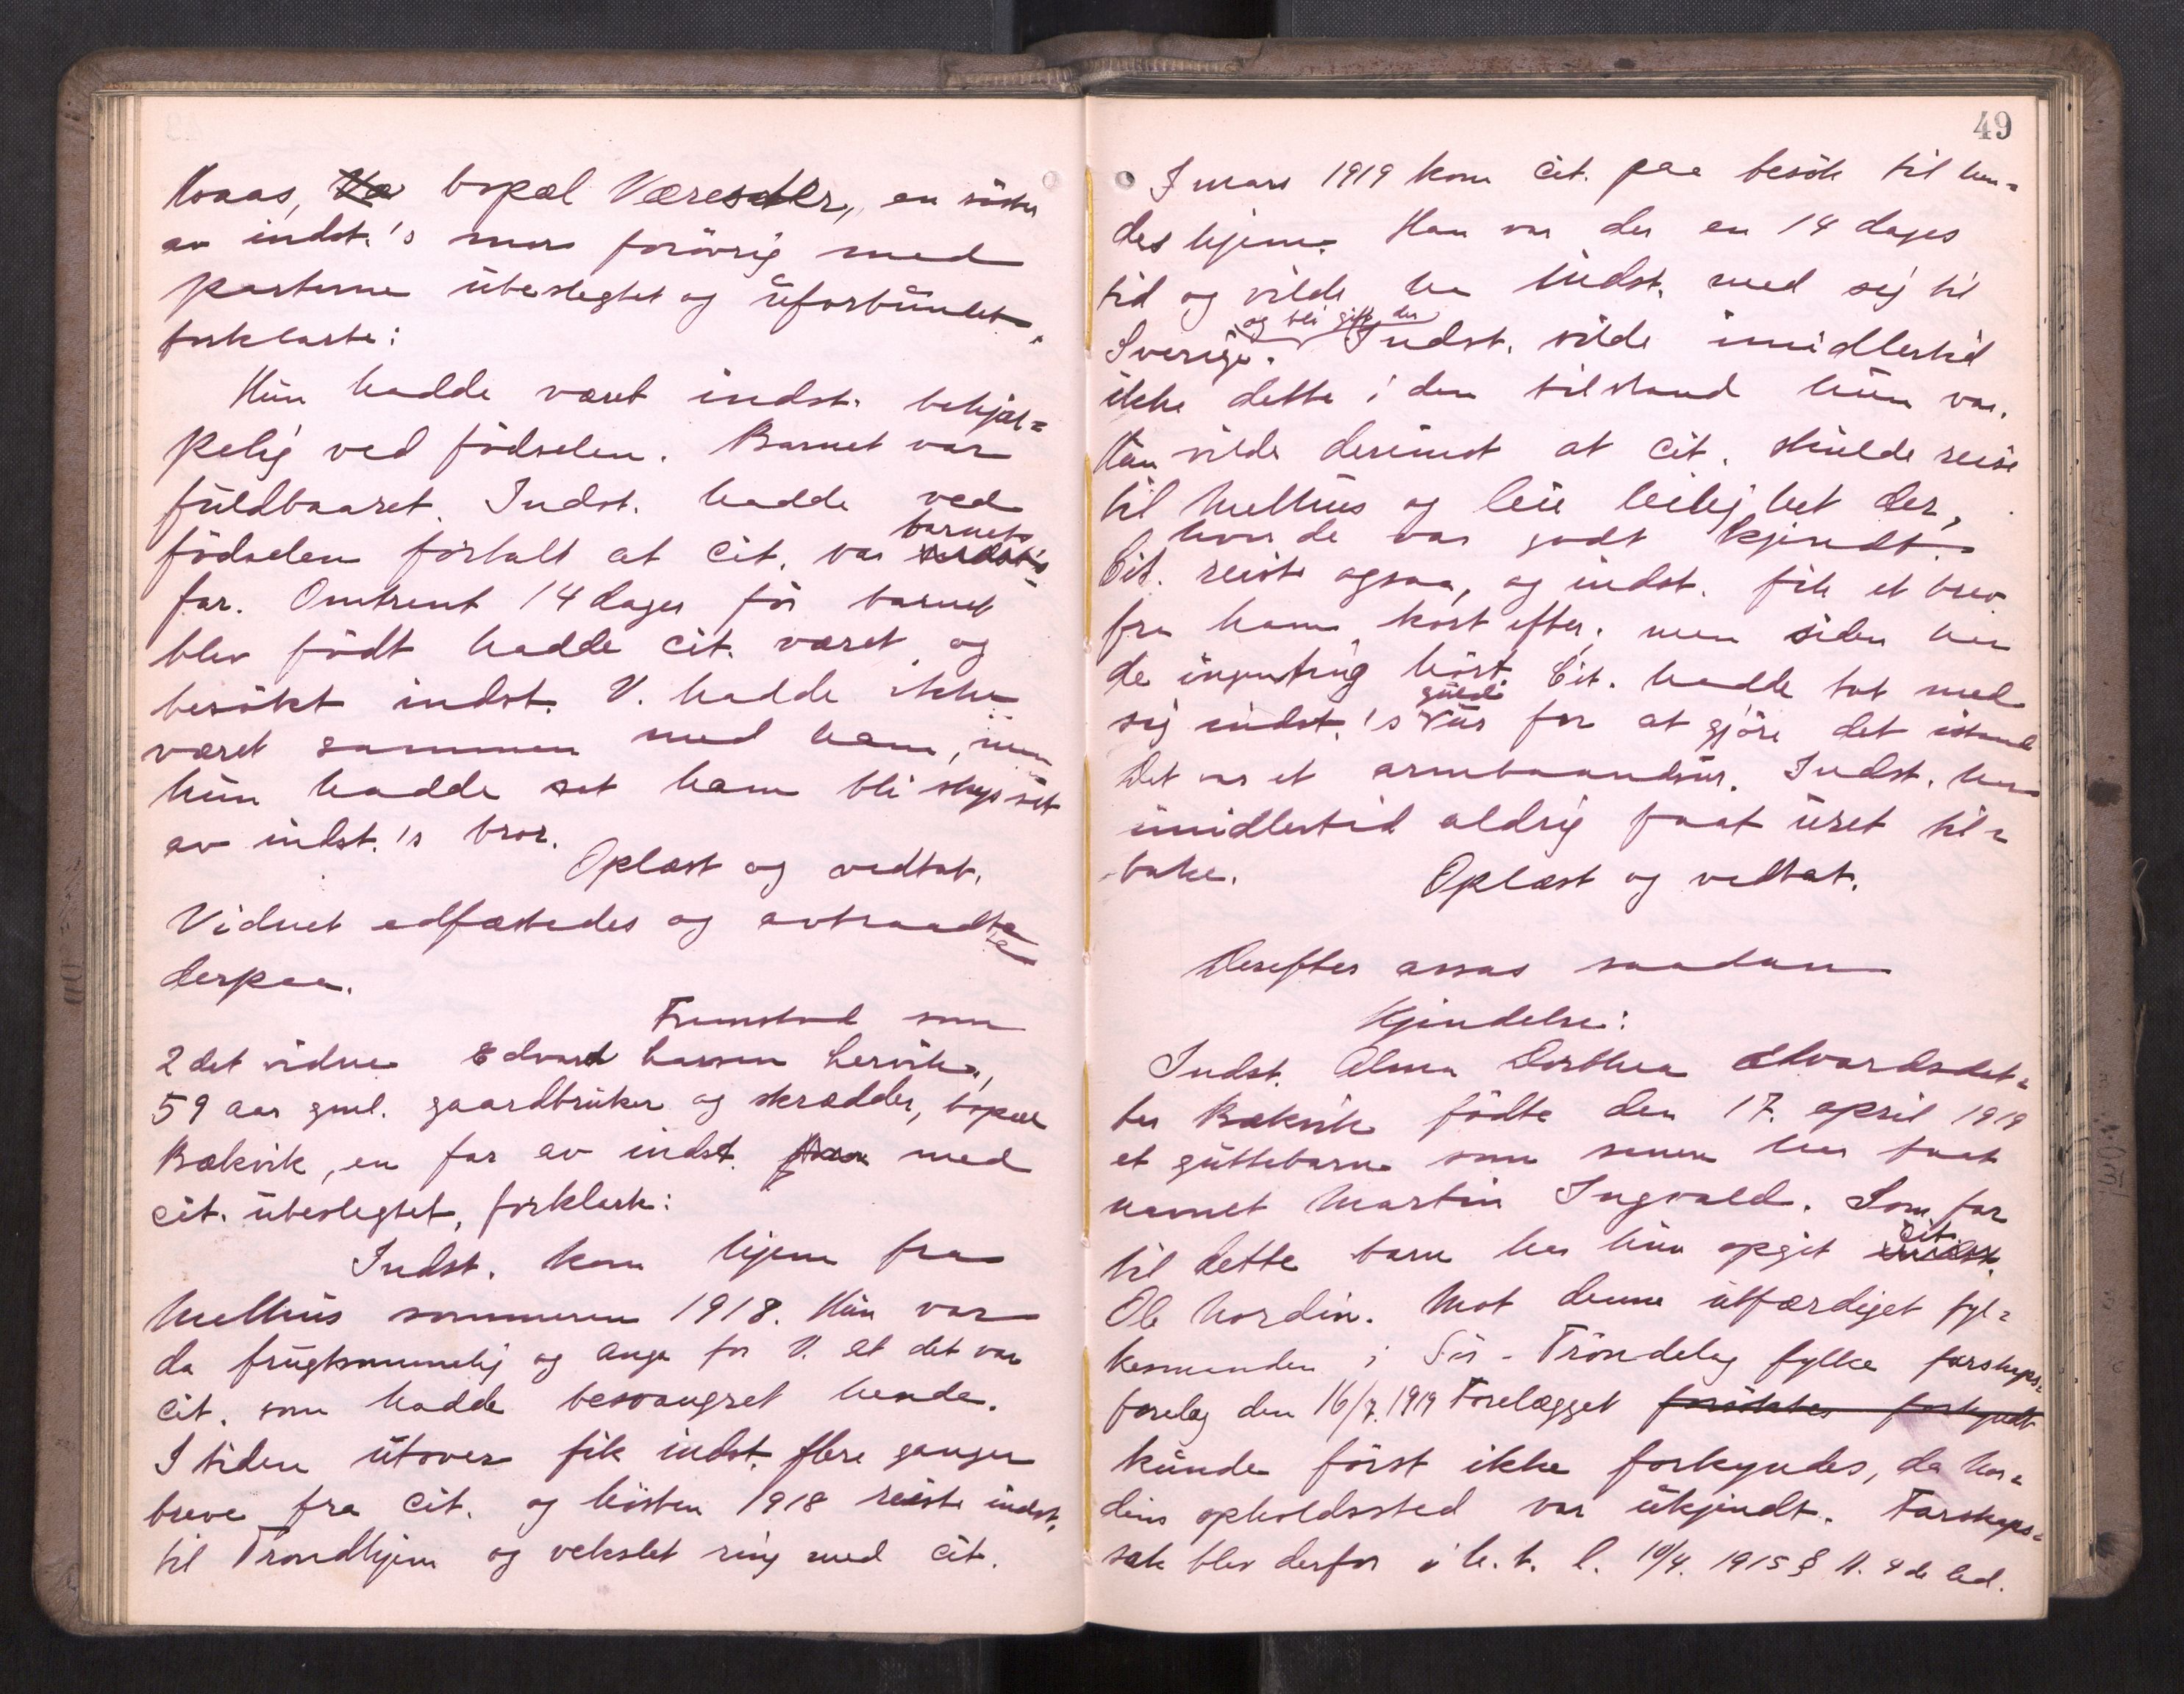 Moaas, bopæl Væresæter, en söster
av indst.'s mor forövrig med
parterne ubeslegtet og uforbundet,
forklarte:
Hun hadde været indst. behjæl=
pelig ved födselen. Barnet var
fuldbaaret. Indst. hadde ved
födselen fortalt at cit. var barnets
far. Omtrent 14 dager för barnet
blev födt hadde cit. været og
besökt indst. V. hadde ikke
været sammen med ham, men
hun hadde set ham bli skysset
av indst.'s bror.
Oplæst og vedtat.
Vidnet edfæstedes og avtraadte
derpaa.
Fremstod som
2det vidne Edvard Larsen Lervik,
59 aar gml. gaardbruker og skrædder, bopæl
Bækvik, en far av indst. med
cit. ubeslegtet, forklarte:
Indst. kom hjem fra
Melhus sommeren 1918. Hun var
da frugtsommelig og angav for V. at det var
cit. som hadde besvangret hende.
I tiden utover fik indst. flere ganger
breve fra cit. og hösten 1918 reiste indst.
til Trondhjem og vekslet ring med cit.
49
I mars 1919 kom cit. paa besök til hen=
des hjem. Han var der en 14 dages
tid og vilde ha indst. med sig til
og bli gift der
Sverige. Indst. vilde imidlertid
ikke dette i den tilstand hun var.
Hun vilde derimot at cit. skulde reise
til Melhus og leie leilighet der,
hvor de var godt kjendt.
Cit. reiste ogsaa, og indst. fik et brev
fra ham kort efter, men siden har
de ingenting hört. Cit. hadde tat med
guld
sig indst.'s ur for at gjöre det istand
Det var et armbaandsur. Indst. har
imidlertid aldrig faat uret til=
bake. Oplæst og vedtat.
Derefter avsas saadan
Kjendelse:
Indst. Alma Dorthea Edvardsdat=
ter Bækvik födte den 17. april 1919
et guttebarn som senere har faat
navnet Martin Ingvald. Som far
til dette barn har hun opgit cit.
Ole Nordin. Mot denne utfærdiget fyl=
kesmanden i Sör-Tröndelag fylke farskaps=
forelæg den 16/7. 1919 Forelægget forsöktes forkyndt
kunde först ikke forkyndes, da Nor=
dins opholdssted var ukjendt. Farskaps=
sak blev derfor i h. t. l. 10/4. 1915 § 11. 4de led.